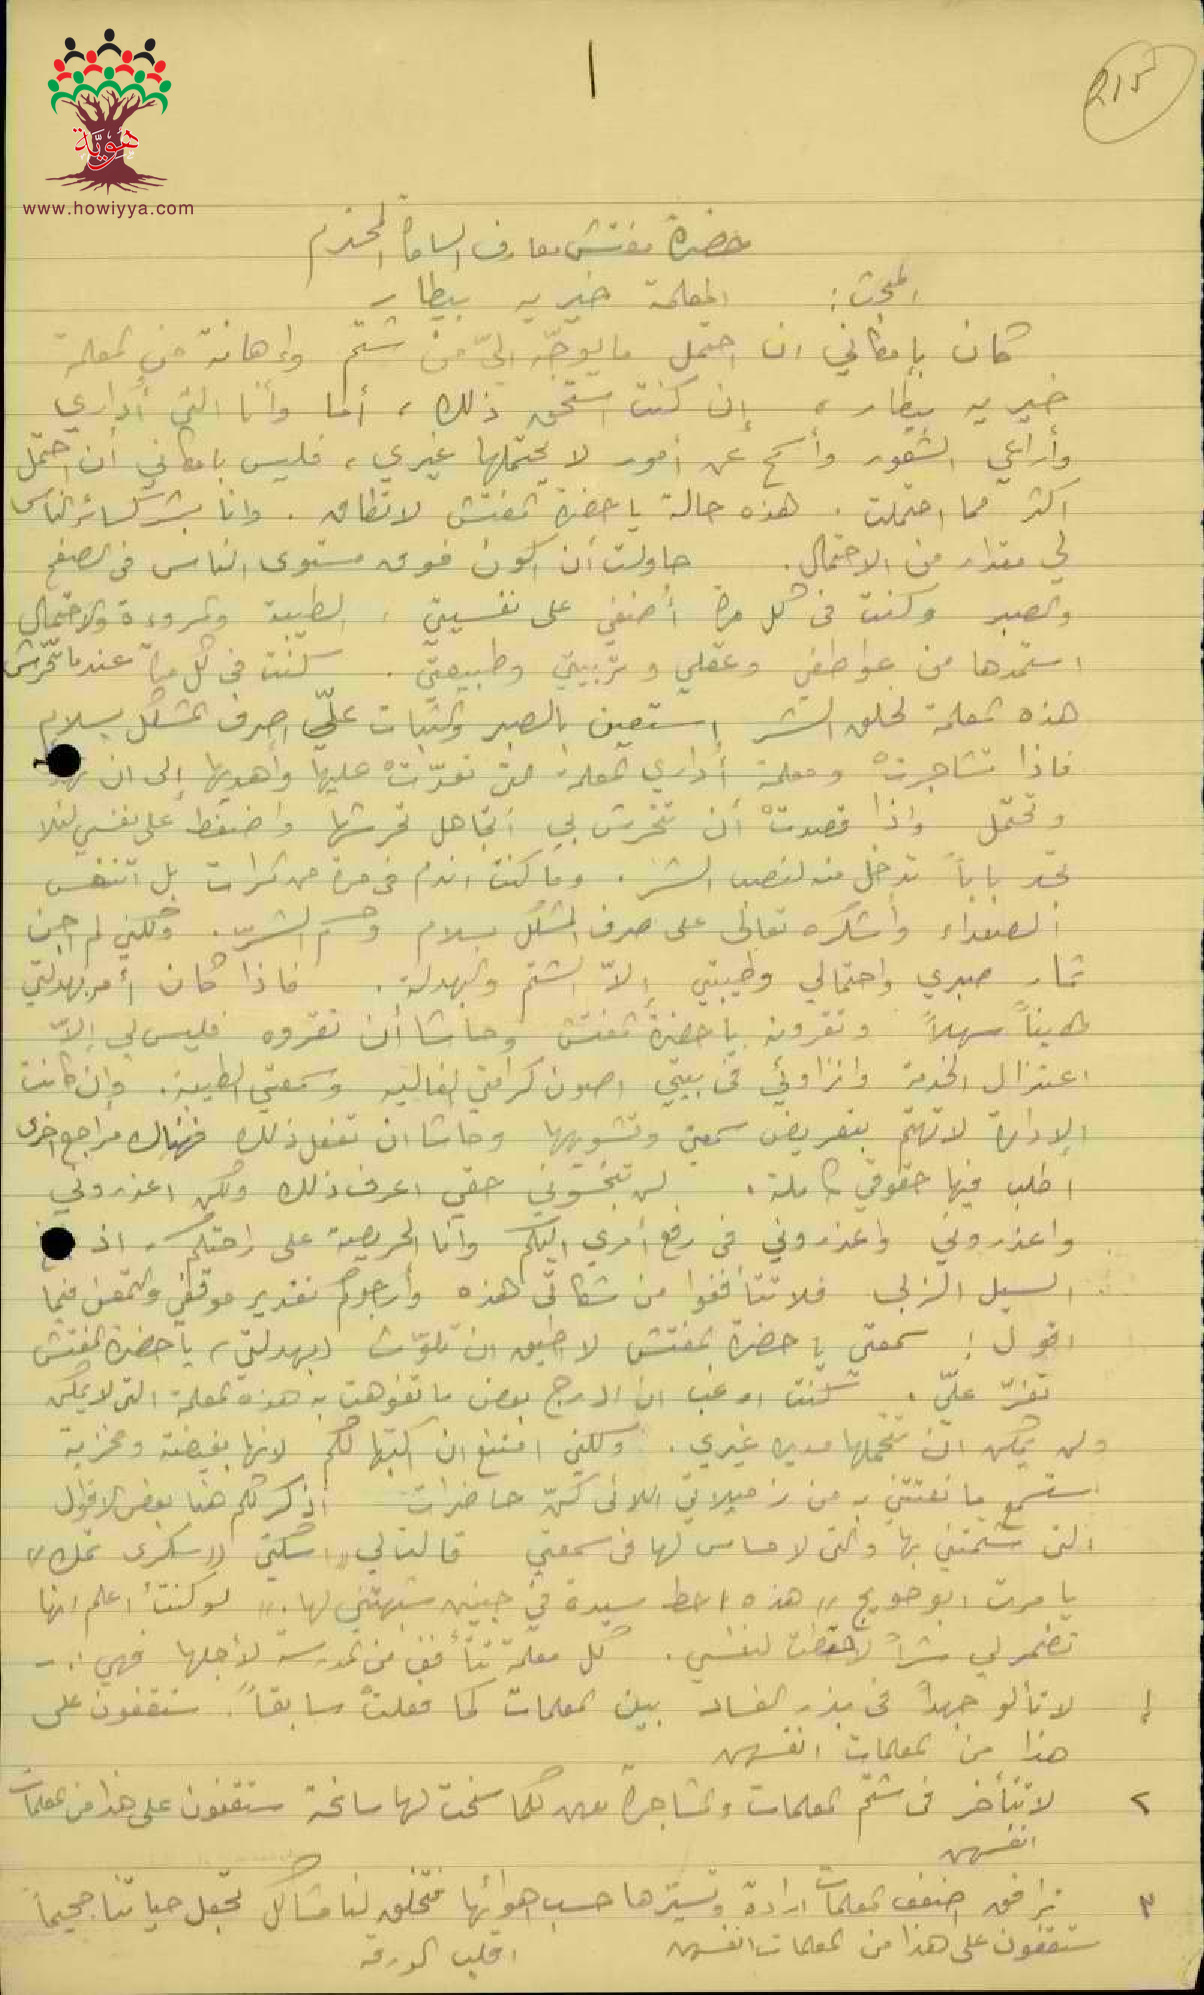 215
هوية
www.howiyya.com
حضرة مفتش معارف السامرة المحترم
المبحث: المعلمة خيريه بيطار
كان بإمكاني ان احتمل ما يوجّه اليّ من شتم وإهانة من المعلمة
خيريه بيطار، إن كنت استحق ذلك، أما وأنا التي أداري
وأراعي الشعور وأسمح عن أمور لا يحتملها غيري، فليس بامكاني أن احتمل
اكثر مما احتملت. هذه حالة يا حضرة المفتش لا تطاق. وانا بشر كسائر الناس
لي مقدار من الاحتمال. حاولت أن اكون فوق مستوى الناس في الصفح
والصبر وكنت في كل مرة أضفي على نفسيتي، الطيبة والمروءة والاحتمال
استمدها من عواطفي وعقلي وتربيتي وطبيعتي. كنت في كل مرة عندما تتحرش
هذه المعلمة لخلق الشر استعين بالصبر والثبات علّي اصرف المشكل بسلام
فاذا تشاجرتْ ومعلمة أداري المعلمة التي تعدّتْ عليها وأهديها إلى ان تهدأ
وتحتمل واذا قصدتْ أن تتحرش بي اتجاهل تحرشها واضغط على نفسي لئلا
تجد باباً تدخل منه لتصب الشر. وما كنت اندم في مرة من المرات بل اتنفس
الصعداء وأشكره تعالى على صرف المشكل بسلام وحسم الشرّ. ولكني لم اجن
ثمار صبري واحتمالي وطيبتي إلاّ الشتم والبهدلة. فاذا كان أمر بهدلتي
هيناً سهلاً وتقرونه يا حضرة المفتش وحاشا أن تقروه فليس لي إلاّ
اعتزال الخدمة وانزاوئي في بيتي اصون كرامتي الغالية وسمعتي الطيبة. وإن كانت
الإدارة لا تهتم بتعريض سمعتي وتشويهها وحاشا ان تفعل ذلك فهناك مراجع اخرى
اطلب فيها حقوقي كاملة. لن تبخسوني حقي اعرف ذلك ولكن اعذروني
واعذروني واعذروني في رفع أمري اليكم وأنا الحريصة على راحتكم، اذ بلغ
السيل الزبى فلا تتأففوا من شكاتي هذه وأرجوكم تقدير موقفي والتمعن فيما
اقول! سمعتي يا حضرة المفتش لا اطيق ان تلوّث (بهدلتي) يا حضرة المفتش
تعزّ عليّ. كنت ارغب ان ادرج بعض ما تفوهت به هذه المعلمة التي لا يمكن
ولن يمكن ان تتحملها مديرة غيري. ولكني امتنع ان اكتبها لكم لانها بغيضة ومخزية
استمع ما نعتتني به من زميلاتي اللاتي كنّ حاضرات اذكر لكم هنا بعض الاقوال
التي شتمتني بها والتي لا مساس لها في سمعتي قالت لي "اسكتي" "سكري تمك"
يا مرت ابو حويج "هذه احط سيدة في جنين شبهتني لها." لو كنت أعلم انها
تضمر لي شراً لاحتطت لنفسي. كل معلمة تتأفف من المدرسة لأجلها فهي: ـ
١ لا تألو جهداً في بذر الفساد بين المعلمات كما فعلتْ سابقاً. ستقفون على
هذا من المعلمات انفسهن
٢ لا تتأخر في شتم المعلمات والمشاجرة معهن كلما سنحت لها سانحة ستقفون على هذا من المعلمات
انفسهن
٣ ترافق اضعف المعلمات ارادة وتسيّرها حسب اهوائها فتخلق لنا مشاكل تجعل حياتنا جحيماً
ستقفون على هذا من المعلمات انفسهن اقلب الورقة